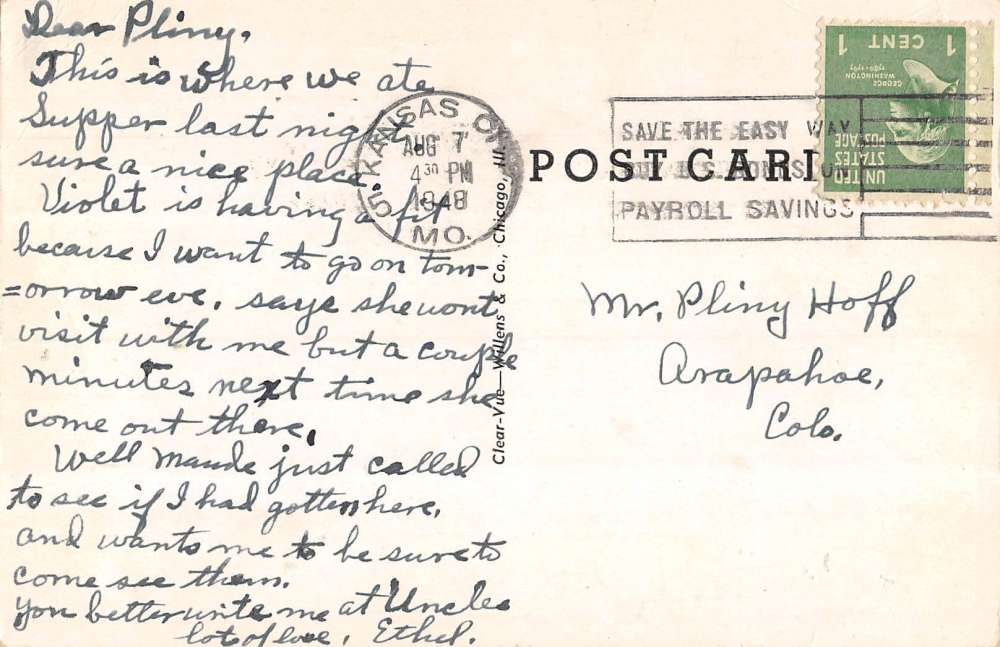 Dear Pliny,
This is where we ate
Supper last night,
sure a nice place
Violet is having a fit
because I want to go on tom-
=orrow eve. says she wont
visit with me but a couple
minutes next time she
come out there.
Well Maude just called
to see if I had gotten here,
and wants me to be sure to
come see them.
You better write me at Uncles
lots of love, Ethel.
KANSAS CITY
5
AUG 7
4 30 PM
1948
MO.
Clear-Vue—Willens & Co., Chicago, Ill.
POST CARD
SAVE THE EASY WAY
BUY U.S. BONDS
PAYROLL SAVINGS
UNITED
STATES
POSTAGE
GEORGE
WASHINGTON
1789-1797
1 CENT 1
Mr. Pliny Hoff
Arapahoe,
Colo.